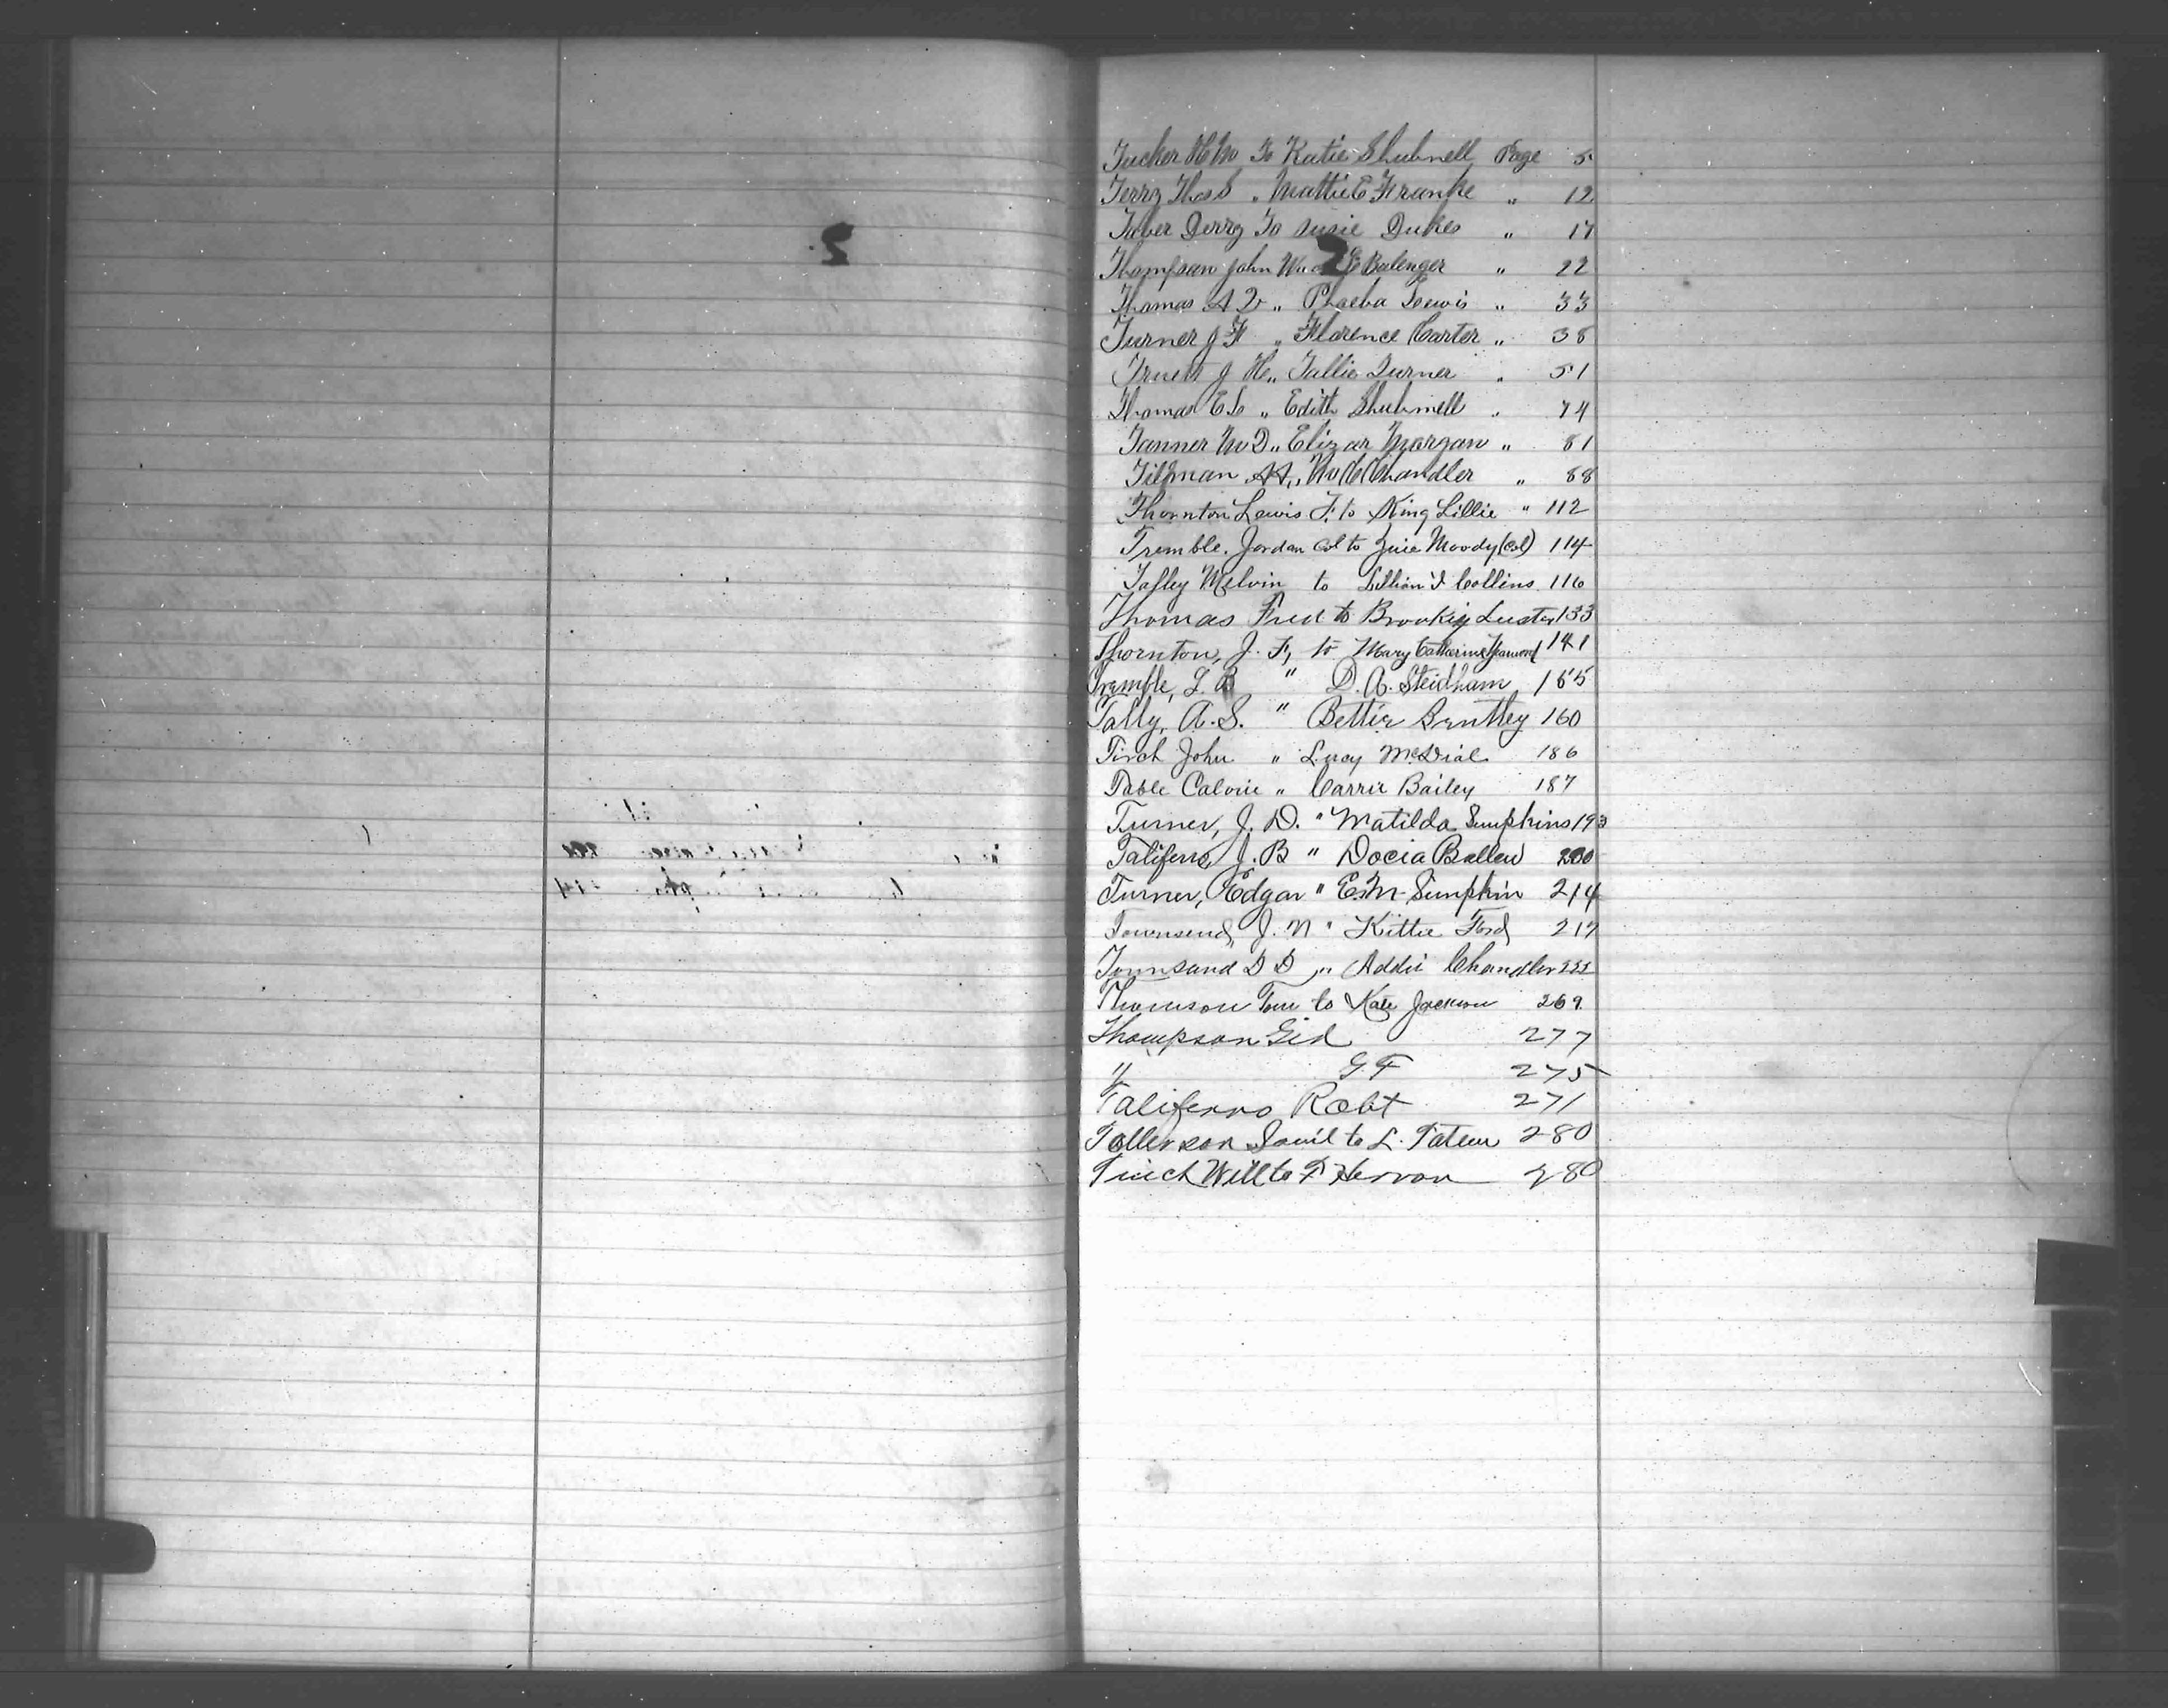 Tucker H W To Katie Shubnell Page 5
Terry Thos S " Mattie E Franke " 12
Taber Derry To Susie Dukes " 17
Thompson John W Balenger " 22
Thomas A D " Phoeba Lewis " 33
Turner J F " Florence Carter " 38
Truett J H " Tallie Turner " 51
Thomas E L " Edith Shubnell " 74
Tanner W D " Elizar Morgan " 81
Tillman A A " Chandler " 88
Thornton Lewis F. to King Lillie " 112
Tremble. Jordan Col to Moody (Col) 114
Talley Melvin to Lillian I Collins 116
Thomas Fred to Luster 133
Thornton, J. F, to Mary Catherine Yearwood 141
Tramble, L. B " D. A. Steidham 155
Tally, A. S. " Bettie Brntley 160
John " Lucy McDial 186
Table Calvin " Carrie Bailey 187
Turner, J. D. " Matilda Simpkins 193
Taliferro, J. B " Docia Ballew 200
Turner, Edgar " E. M. Simpkin 214
Townsend, J. N " Kittie Ford 217
Townsand D D " Addie Chandler 222
Thomson Tom to Kate Jackson 269
Thompson Gid 277
" G F 275
Taliferro Robt 271
Tollerson to L. Tatum 280
Will to F Herron 280